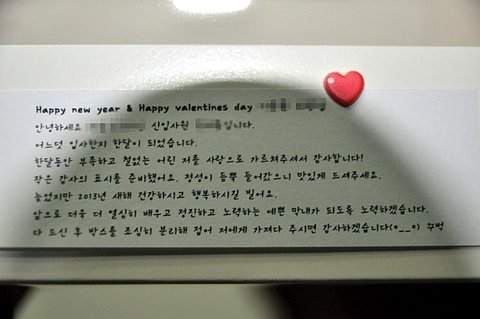 Happy new year & Happy valentines day
안녕하세요 신입사원 입니다.
어느덧 입사한지 한달이 되었습니다.
한달동안 부족하고 철없는 어린 저를 사랑으로 가르쳐주셔서 감사합니다!
작은 감사의 표시를 준비했어요. 정성이 듬뿍 들어갔으니 맛있게 드셔주세요.
늦었지만 2013년 새해 건강하시고 행복하시길 빌어요.
앞으로 더욱 더 열심히 배우고 정진하고 노력하는 예쁜 막내가 되도록 노력하겠습니다.
다 드신 후 박스를 조심히 분리해 접어 저에게 가져다 주시면 감사하겠습니다(*__*) 꾸벅